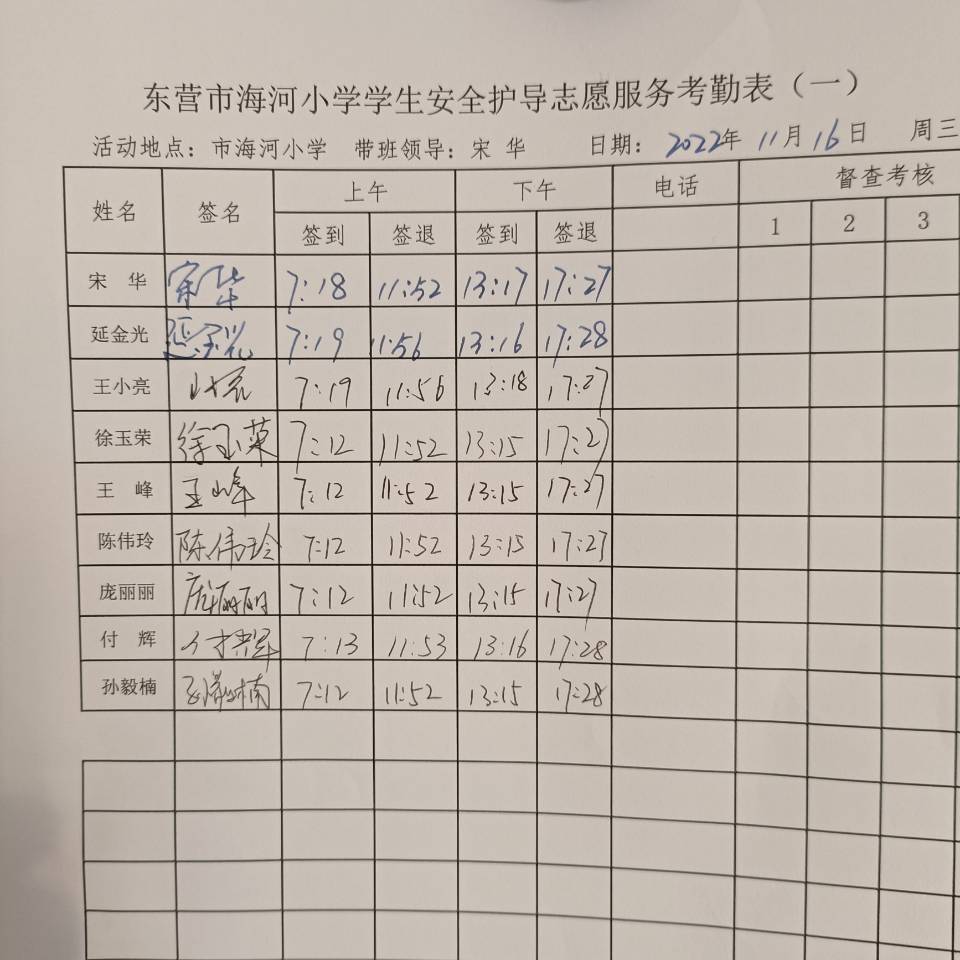 东营市海河小学学生安全护导志愿服务考勤表（一）
活动地点：市海河小学 带班领导：宋 华 日期：2022年 11月 16日 周三
姓名 签名 上午 下午 电话 督查考核
签到 签退 签到 签退 1 2 3
宋 华 宋华 7:18 11:52 13:17 17:27
延金光 延金光 7:19 11:56 13:16 17:28
王小亮 7:19 11:56 13:18 17:27
徐玉荣 徐玉荣 7:12 11:52 13:15 17:27
王 峰 王峰 7:12 11:52 13:15 17:27
陈伟玲 陈伟玲 7:12 11:52 13:15 17:27
庞丽丽 庞丽丽 7:12 11:52 13:15 17:27
付 辉 付辉 7:13 11:53 13:16 17:28
孙毅楠 孙毅楠 7:12 11:52 13:15 17:28